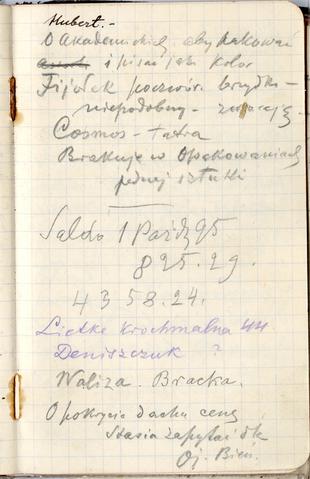 Hubert.-
O Akademickiej aby pakować
i pisać jaki kolor
Fijołek poczwór. brzydki -
niepodobny - zwracają
Cosmos - tatra
Brakuje w Opakowaniach
jednej sztuki
Saldo 1 Paźdz 95
825.29.
4358.24.
Lietke Krochmalna 44
Deniszczuk ?
Waliza. Bracka.
O pokrycie dachu cenę
Stasia zapytać dla
Oj. Bien.